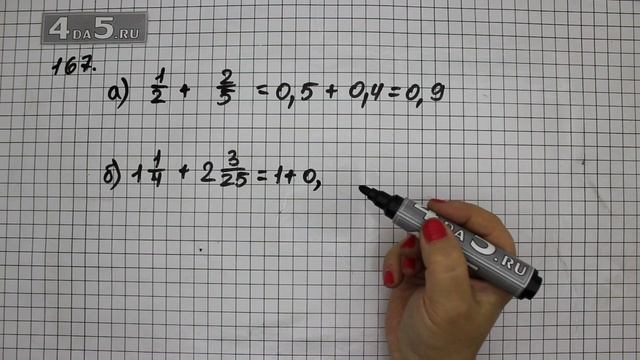 4ДА5.RU
167.
а) 1/2 + 2/5 = 0,5 + 0,4 = 0,9
б) 1 1/4 + 2 3/25 = 1 + 0,
4ДА5.RU